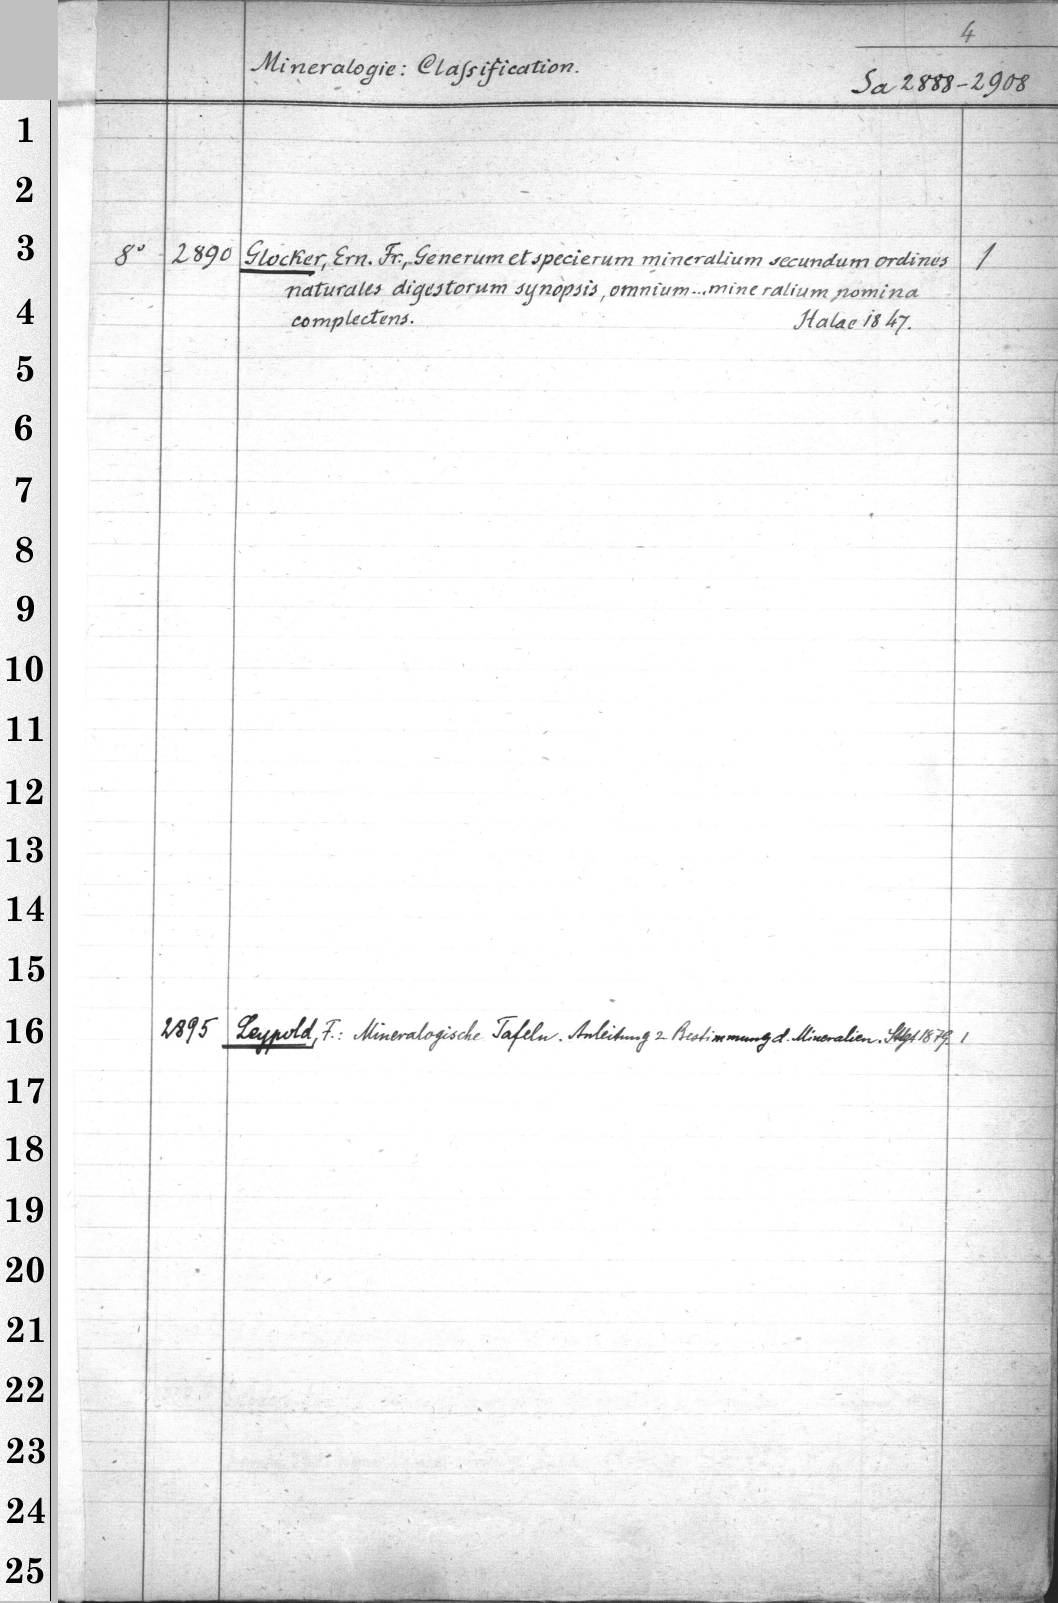 4
Mineralogie: Claſsification.
Sa 2888-2908
1
2
3
8° 2890 Glocker, Ern. Fr., Generum et specierum mineralium secundum ordines 1
naturales digestorum synopsis, omnium...mineralium nomina
4
complectens. Halae 1847.
5
6
7
8
9
10
11
12
13
14
15
16
2895 Leypold, F.: Mineralogische Tafeln. Anleitung z Bestimmung d. Mineralien. Sttgt 1879. 1
17
18
19
20
21
22
23
24
25